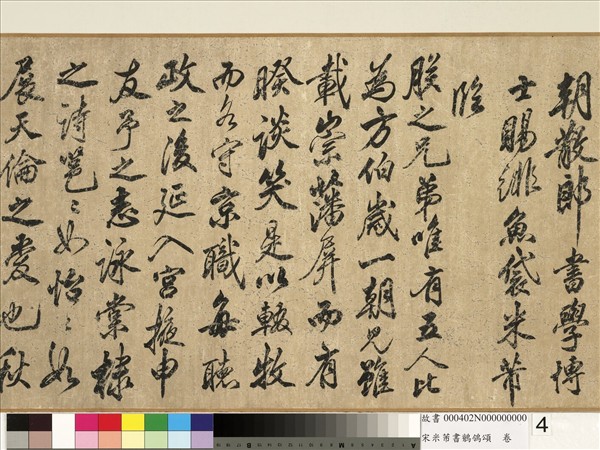 朝散郎書學博
士賜緋魚袋米芾
臨
朕之兄弟唯有五人比
為方伯歲一朝見雖
載崇藩屏而有
睽談笑是以輟牧
而各守京職每聽
政之後延入宮掖申
友于之志詠棠棣
之詩邕邕如怡怡如
展天倫之愛也秋
故書 000402N000000000
宋米芾書鶺鴒頌 卷
4